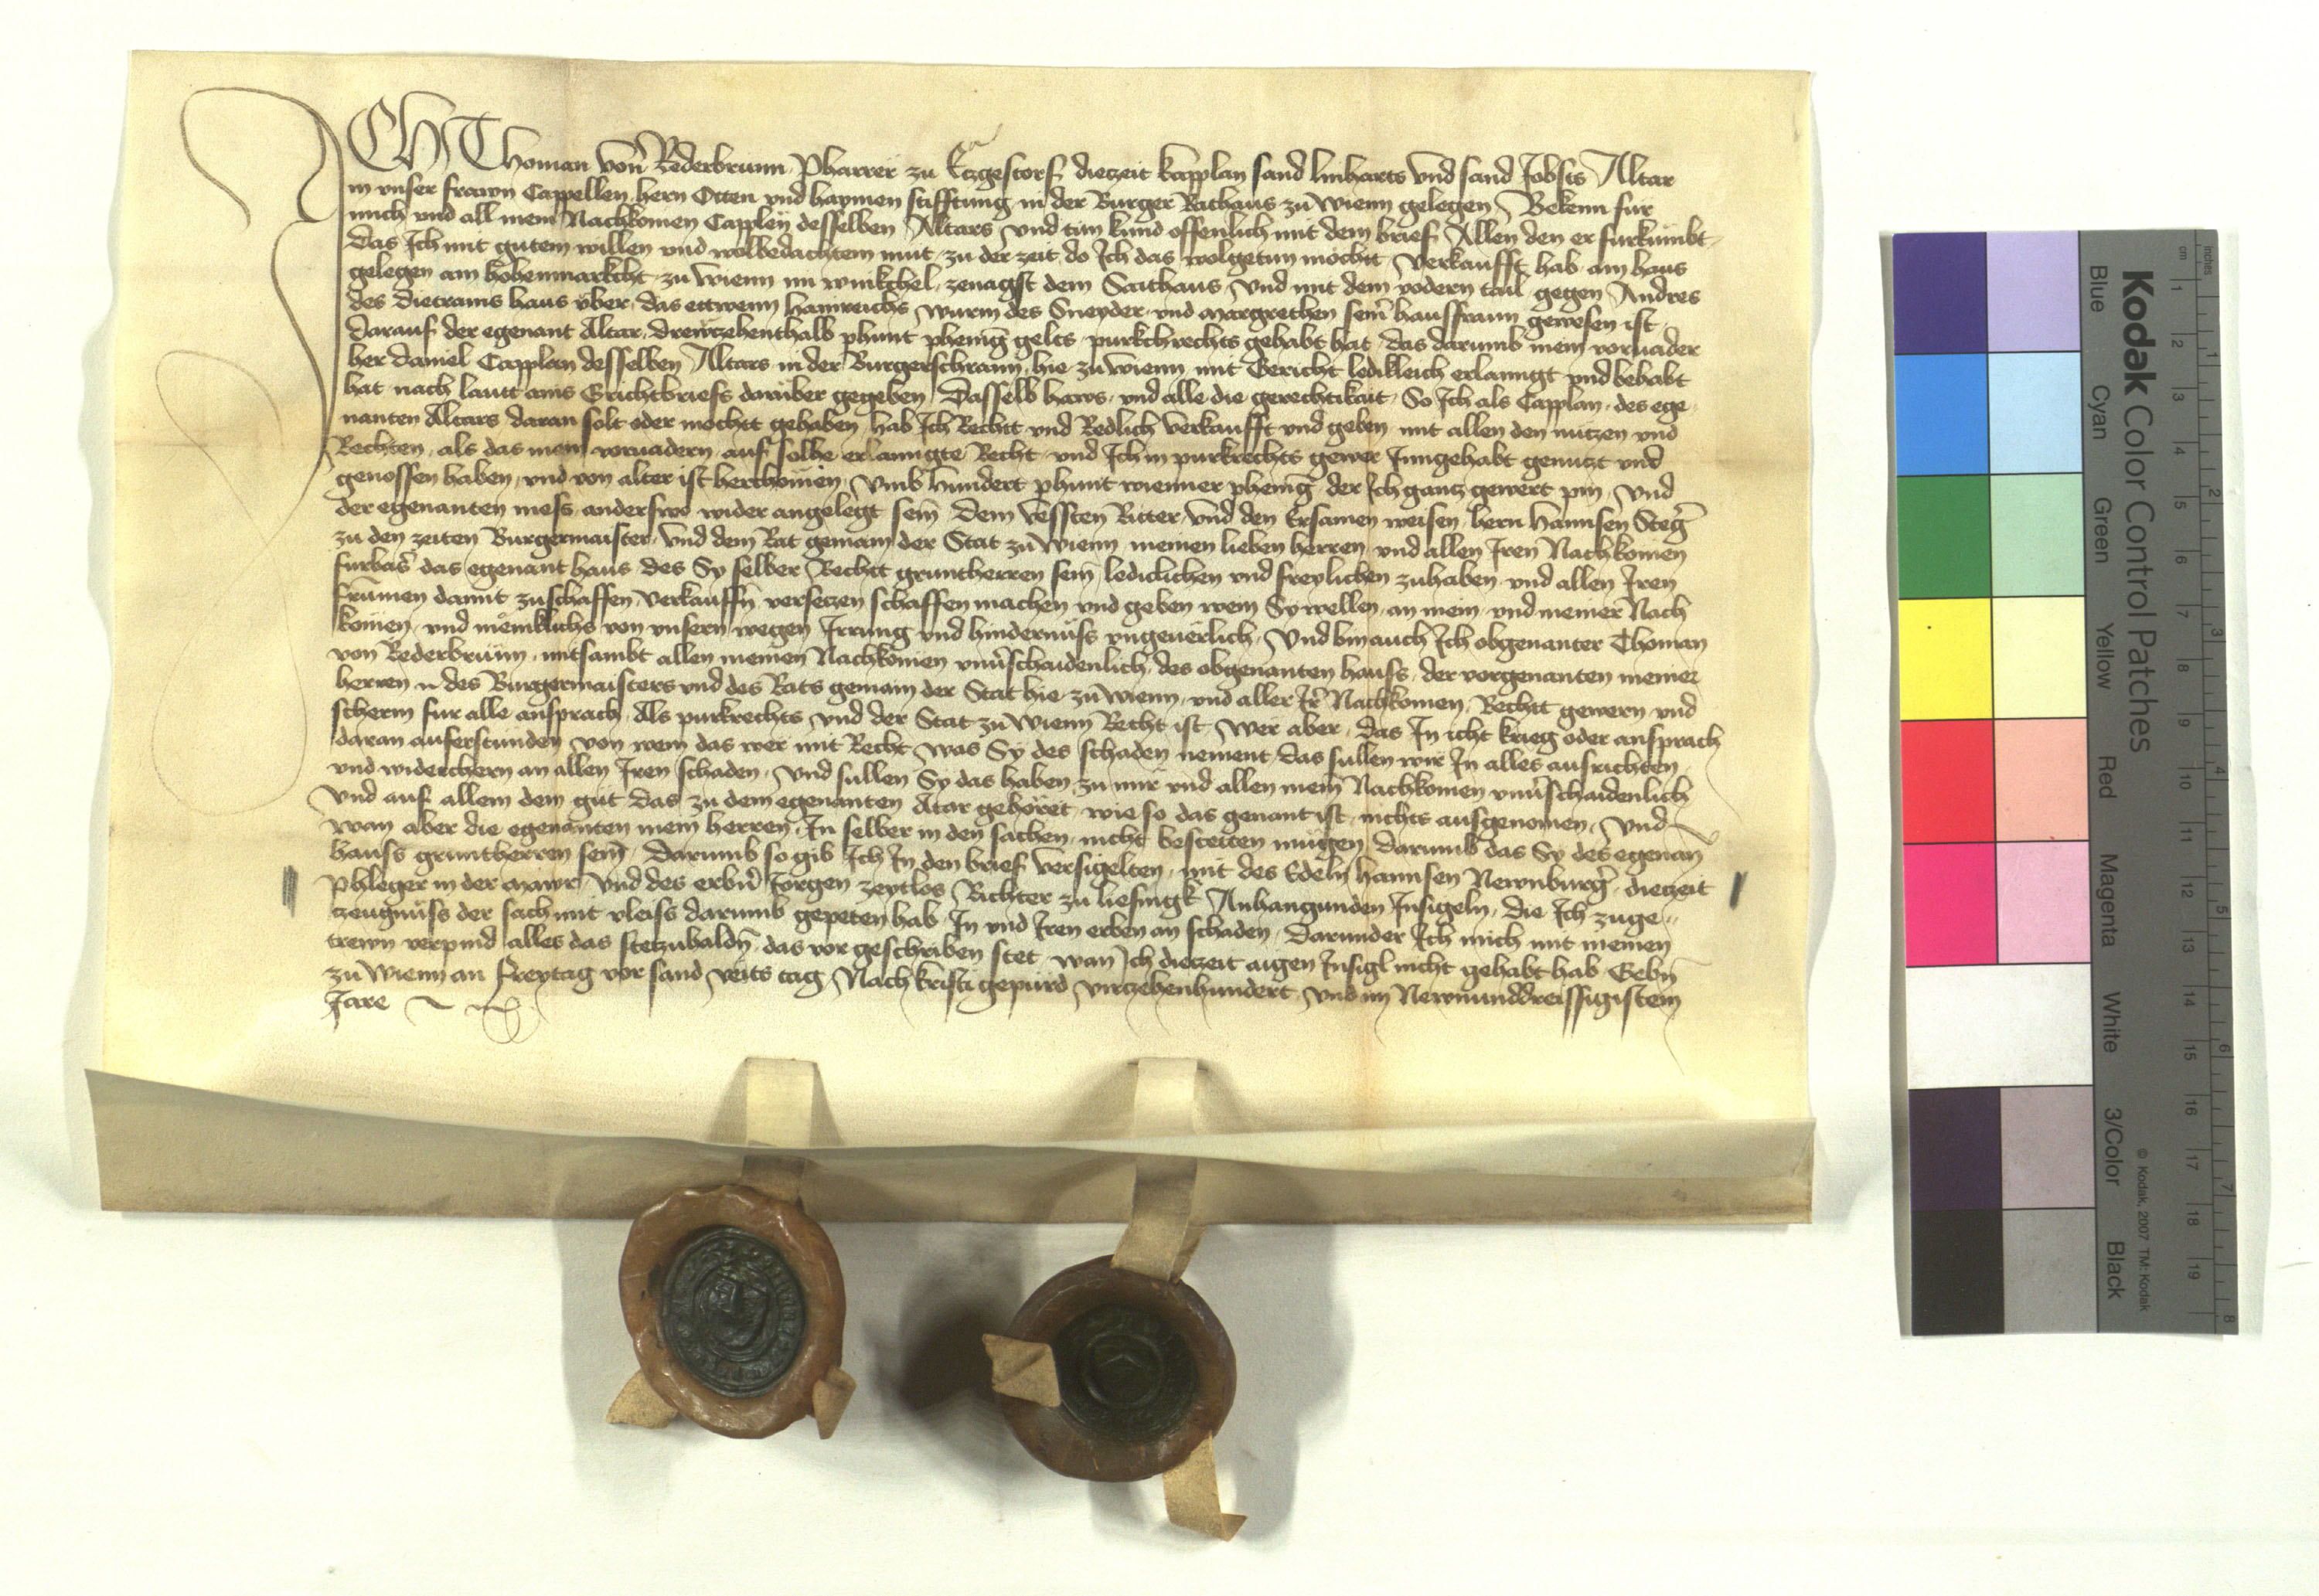 ICH Thoman von Rederbrunn Pharrer zu Etzgestorf dietzeit kapplan sand linharts vnd sand Jobsts Altar
in vnser frawn Cappellen hern Otten vnd haymen stifftung in der Burger Rathaus zu Wienn gelegen Bekenn fur
mich vnd all mein Nachkomen Capplen desselben Altars vnd tun kund offenlich mit dem brief Allen den er furkumbt
das Ich mit gutem willen vnd wolbedachtem mut zu der zeit do Ich das wolgetun mochtt verkaufft hab ain haus
gelegen am hohenmarkcht zu wienn im winkchel zenagst dem Saithaus vnd mit dem vodern tail gegen Andres
des dietrams haus vber das ettwenn hainreichs wurm des Sneyder vnd margrethen sein hausfraun gewesen ist
darauf der egenant Altar drewtzehenthalb phunt phenig gelts purkchrechts gehabt hat das darumb mein voruader
her daniel Capplan desselben Altars in der Burgerschrann hie zu wienn mit Gericht ledikleich erlanngt vnd behabt
hat nach lautt ains Grichtbriefs daruber gegeben Dasselb haws vnd alle die gerechtikait So Ich als Capplan des ege
nanten Altars daran solt oder mochtt gehaben hab Ich Rechtt vnd Redlich verkaufft vnd geben mit allen den nutzen vnd
Rechten als das mein voruadern auf solhe erlanngte Recht vnd Ich in purkrechts gewer Inngehabt genutzt vnd
genossen haben vnd von alter ist herchomen vmb hundert phunt wienner phenig der Ich gantz gewert pin vnd
der egenanten mess anderswo wider angelegt sein dem vessten Ritter vnd den Ersamen weisen hern hannsen Steger
zu den zeiten Burgermaister vnd dem Rat gemain der Stat zu Wienn meinen lieben herren vnd allen Iren Nachkomen
furbas das egenant haus des Sy selber Rechtt gruntherren sein ledielichen vnd freylichen zuhaben vnd allen Iren
frumen damit zuschaffen verkauffn versetzen schaffen machen vnd geben wem Sy wellen an mein vnd meiner Nach
komen vnd menikliches von vnsern wegen Irrung vnd hindernuss vngeuerlich Vnd bin auch Ich obgenanter Thoman
von Rederbrunn mitsambt allen meinen Nachkomen vnuerschaidenlich des obgenanten hauss der vorgenanten meiner
herren n des Burgermaisters vnd des Rats gemain der Stat hie zu wienn vnd aller Ir Nachkomen Rechtt gewern vnd
scherm fur alle ansprach Als purkrechts vnd der Stat zu Wienn Recht ist Wer aber das In icht krieg oder ansprach
daran auferstunden von wem das wer mit Recht was Sy des schaden nement das sullen wir In alles ausrichten
vnd widerchern an allen Iren schaden vnd sullen Sy das haben zu mir vnd allen mein Nachkomen vnuerschaidenlich
vnd auf allem dem gut das zu dem egenanten Altar gehoret wie so das genant ist nichts ausgenomen vnd
wan aber die egenanten mein herren In selber in den sachen nicht bestetten mugen darumb das Sy des egenan
hauss gruntherren sein Darumb so gib Ich In den brief versigelten mit des Edeln hannsen Newnburger dietzeit
Phleger in der mawr vnd des erbn Jorgen zeytlos Richter zu liesingk Anhangunden Insigeln die Ich zuge
tzeugnuss der sach mit vleiss darumb gepeten hab In vnd Iren erben an schaden darunder Ich mich mit meinen
trewn verpind alles das stetzuhaldn das vor geschriben stet wan Ich dietzeit aigen Insigl nicht gehabt hab Gebn
zu Wienn an Freytag vor sand veits tag Nach kristi gepurd virtzehenhundert vnd im Newnunddreissigistem
Jare
Kodak Color Control Patches
Blue Cyan Green Yellow Red Magenta White 3/Color Black
cm 1 2 3 4 5 6 7 8 9 10 11 12 13 14 15 16 17 18 19
inches 1 2 3 4 5 6 7 8
© Kodak, 2007 TM: Kodak